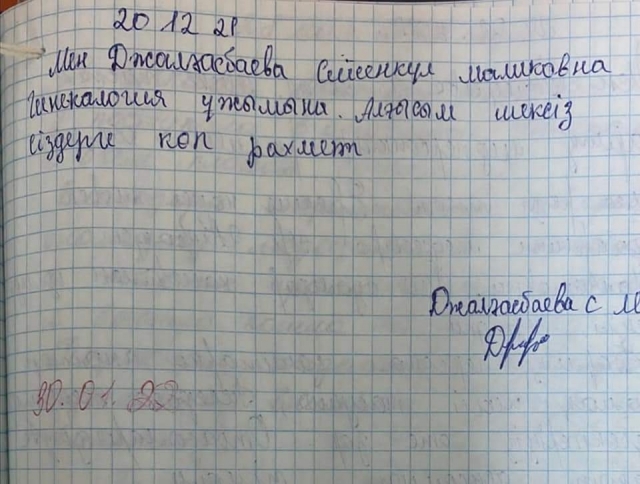 20 12 21
Мен Джалғасбаева Сейсенкул маликовна
Гинекалогия ұжымына. Алғысым шексіз
сіздерге көп рахмет
Джалғасбаева с М
30.01.22